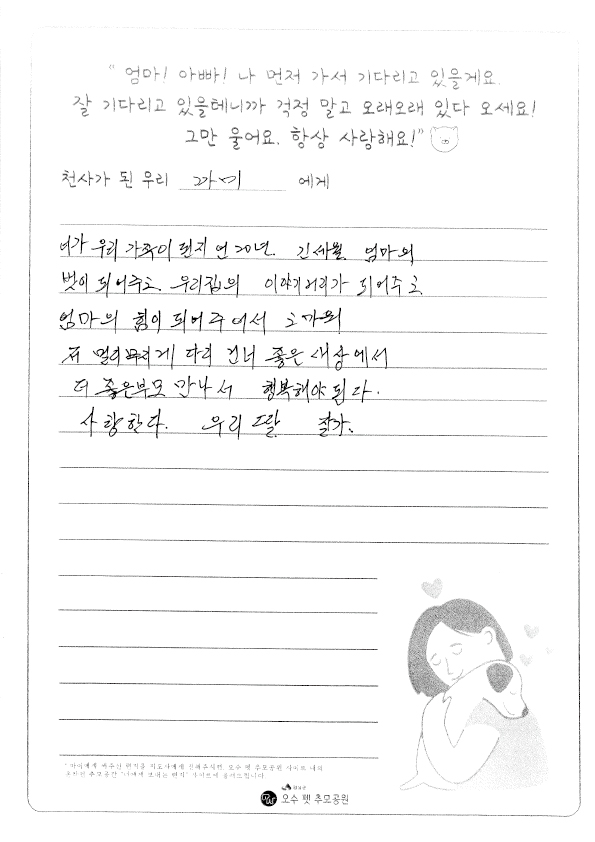 " 엄마! 아빠! 나 먼저 가서 기다리고 있을게요.
잘 기다리고 있을테니까 걱정 말고 오래오래 있다 오세요!
그만 울어요. 항상 사랑해요!"
천사가 된 우리 까미 에게
너가 우리 가족이 된지 언 20년. 긴세월 엄마의
벗이 되어주고 우리집의 이야기거리가 되어주고
엄마의 힘이 되어 주어서 고마워
무지개 다리 건너 좋은 세상에서
더 좋은부모 만나서 행복해야 된다.
사랑한다. 우리 딸 잘가.
오수 펫 추모공원